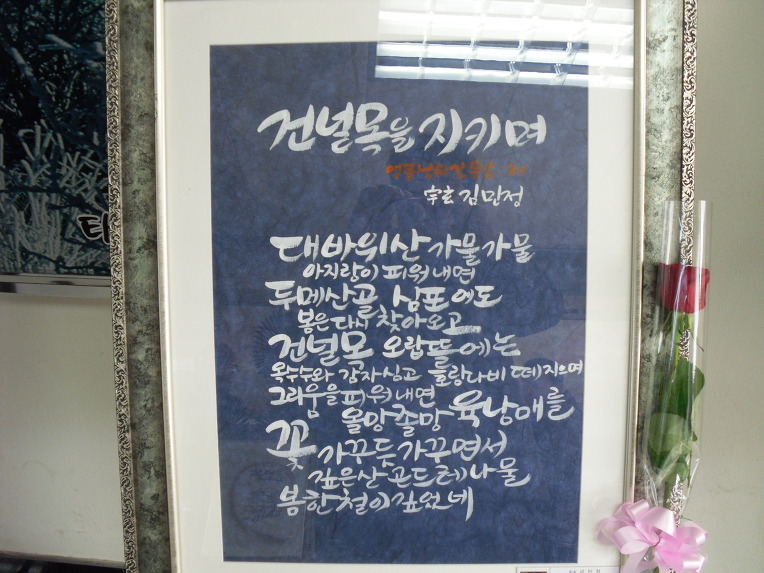 건널목을 지키며
宇玄 김민정
대바위산 가물가물
아지랑이 피워내면
두메산골 심포에도
봄은 다시 찾아오고
건널목 오랍뜰에는
옥수수와 감자 심고 호랑나비 떼지으며
그리움을 피워내면
올망졸망 육남매를
꽃 가꾸듯 가꾸면서
깊은 산 곤드레나물
봄 한철이 깊었네